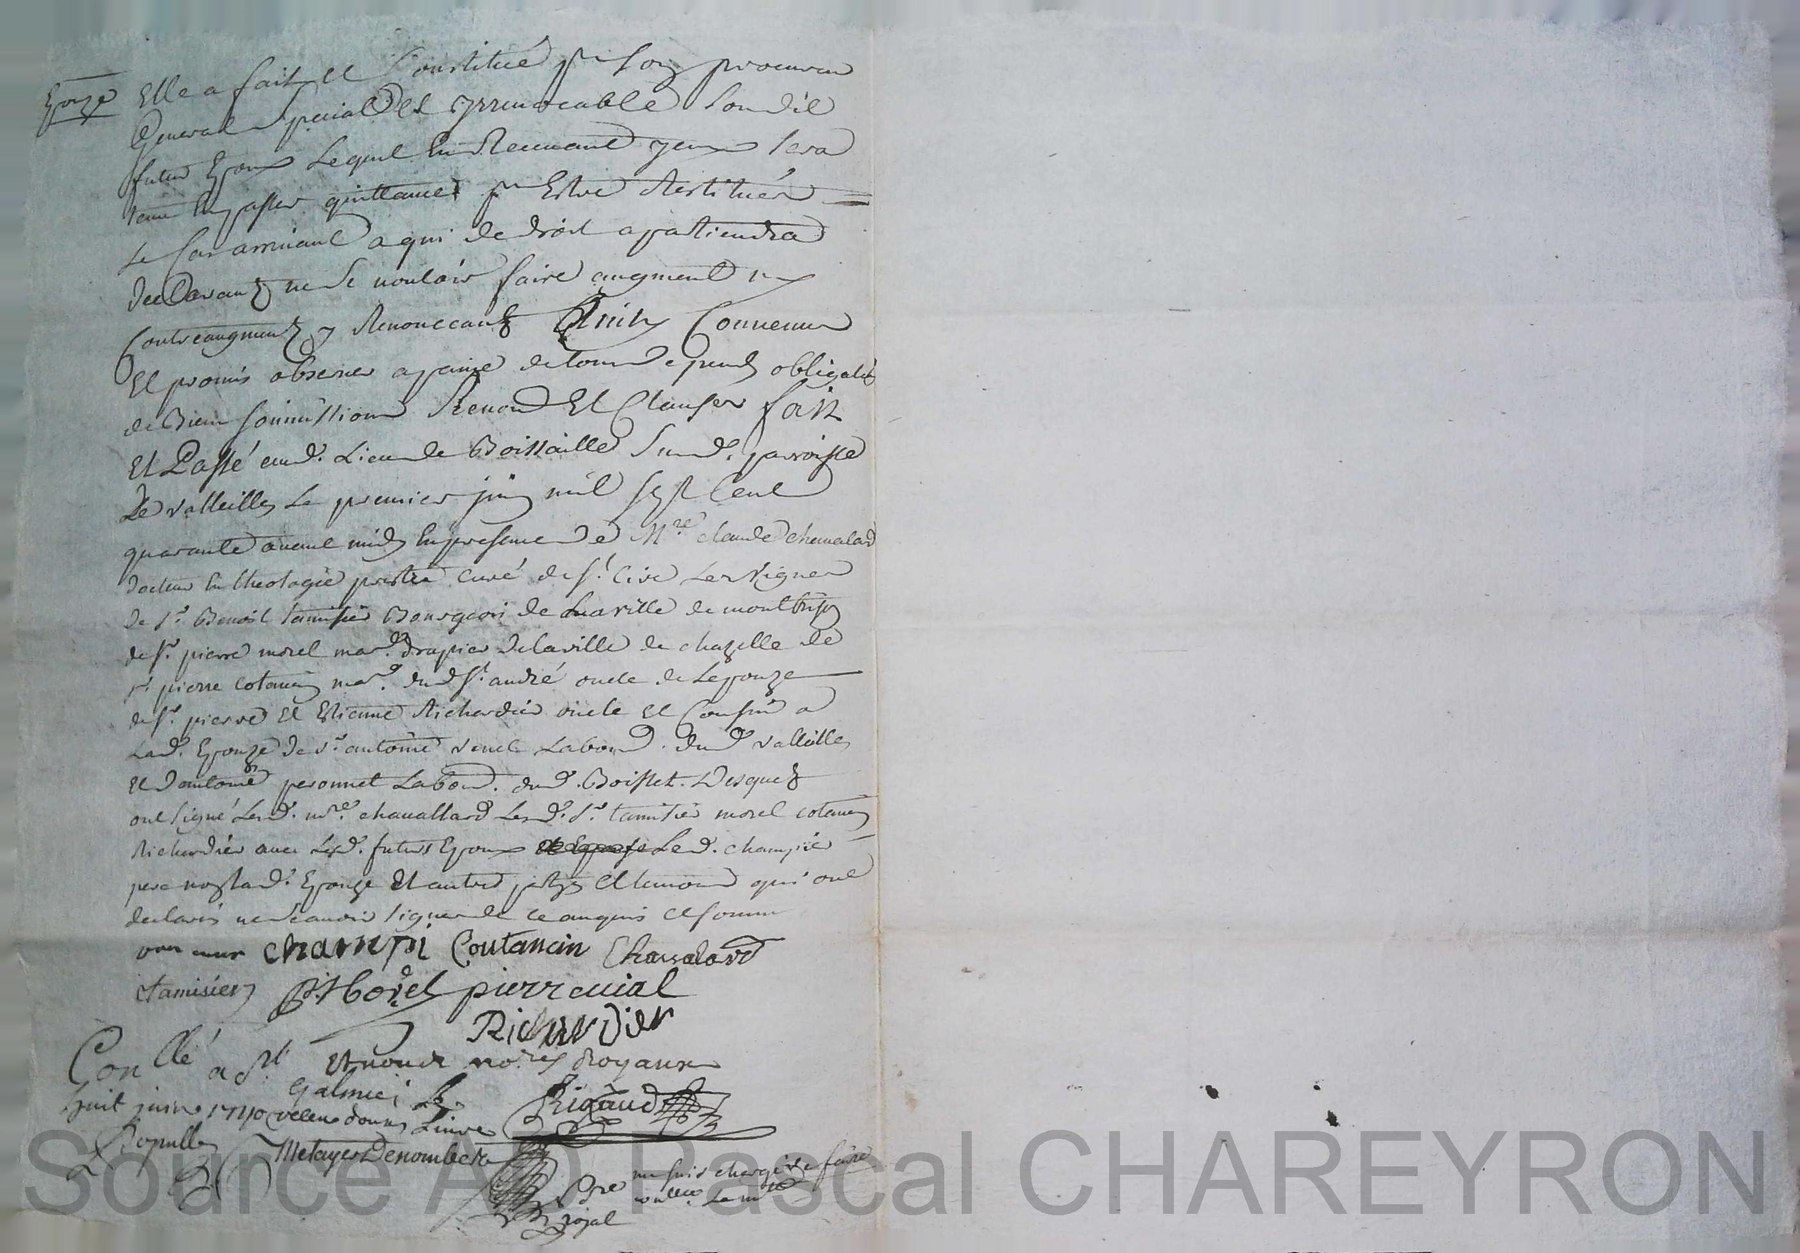 Epouze Elle a fait et Constitué pr son procureur
General special et yrrevocable Son dit
futur Epoux Lequel En Recevant yceux sera
tenu En passer quittances pr Estre Restitués
Le Cas arrivant a qui de droit apartiendra
declarant ne se vouloir faire augment ny
Contreaugment y Renonceant Ainsy Convenu
Et promis observer a peine de tous depends obligation
de Biens soumissions Renond Et Clauses fait
Et Passé aud. Lieu de Boissaille Susd. parroisse
De valleilles Le premier juin mil sept Cent
quarante avant midy En presence de Mre claude chavalard
docteur En theologie prestre curé de st. Cire Les Vignes
de sr. Benoit tamisier Bourgeois de La ville de montbrison
de sr. pierre morel mard. drapier de la ville de chazelle de
sr. pierre cotancin mard. dud st. andré oncle de Lepouze
de sr. pierre Et Etienne Richerdier oncle Et Cousin a
Lad. Epouze de sr. antoine vial Labour. dud valleilles
et d'antoine peronnet Labour. dud. Boisset. Lesquels
ont signé Led. mre. chavallard Lesd. srs. tamisier morel cotancin
Richerdier avec Lesd. futurs Epoux Led. champier
pere non Lad. Epouze Et autres partyes Et temoins qui ont
declarés ne scavoir signer de ce anquis Et sommes
champi Coutancin Chavalard
tamisier P. Morel pierre vial
Richerdier
Conllé a st Et nous nores Royaux
galmier Le
huit juin 1740 Livres
Rigaud
Metayer Denombera
me suis chargé de faire
nre royal